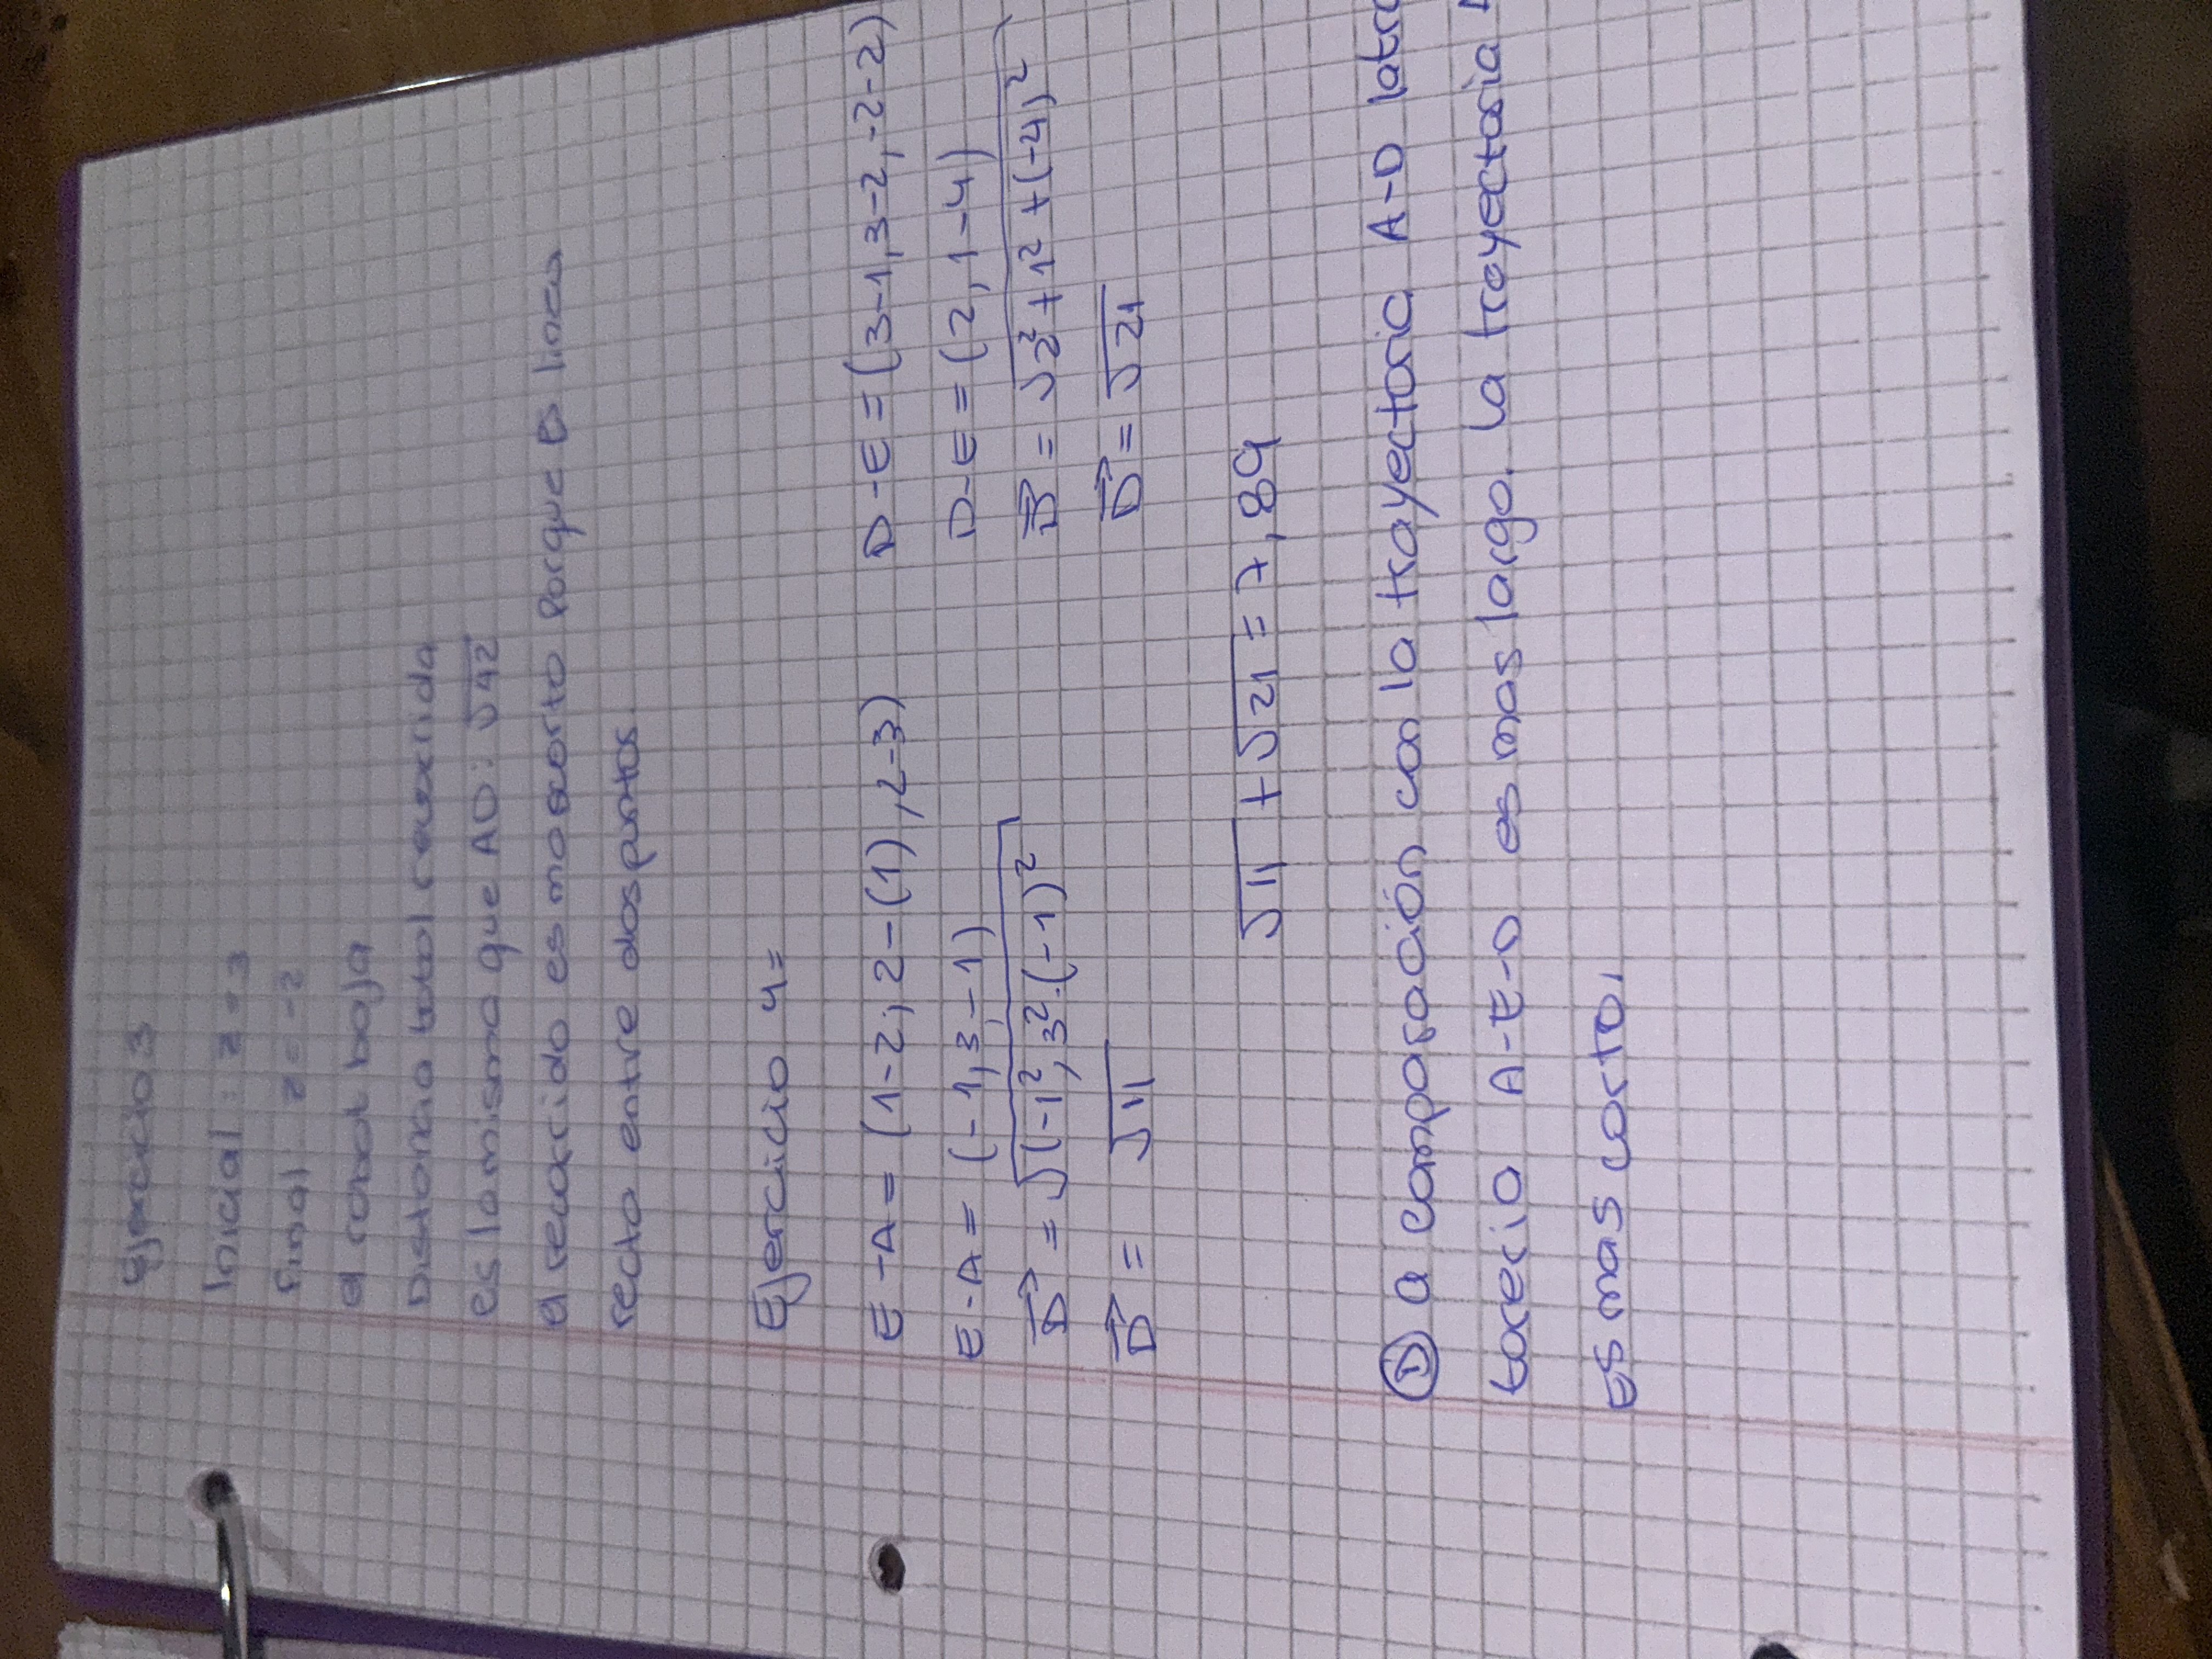 Ejercicio 3
Inicial: z = 3
final z = -2
el robot baja
Distancia total recorrida
es la mismo que AD: √42
el recorrido es mas corto porque es linea
recta entre dos puntos.
Ejercicio 4=
E-A = (1-2, 2-(1), 2-3)
D-E = (3-1, 3-2, -2-2)
E-A = (-1, 3, -1)
D-E = (2, 1-4)
D = √(-1², 3².(-1)²
D = √2² + 1² + (-4)²
D = √11
D = √21
√11 + √21 = 7,89
① a comparación con la trayectoria A-D la
A-E-D es mas largo. la trayectoria
Es mas corto,